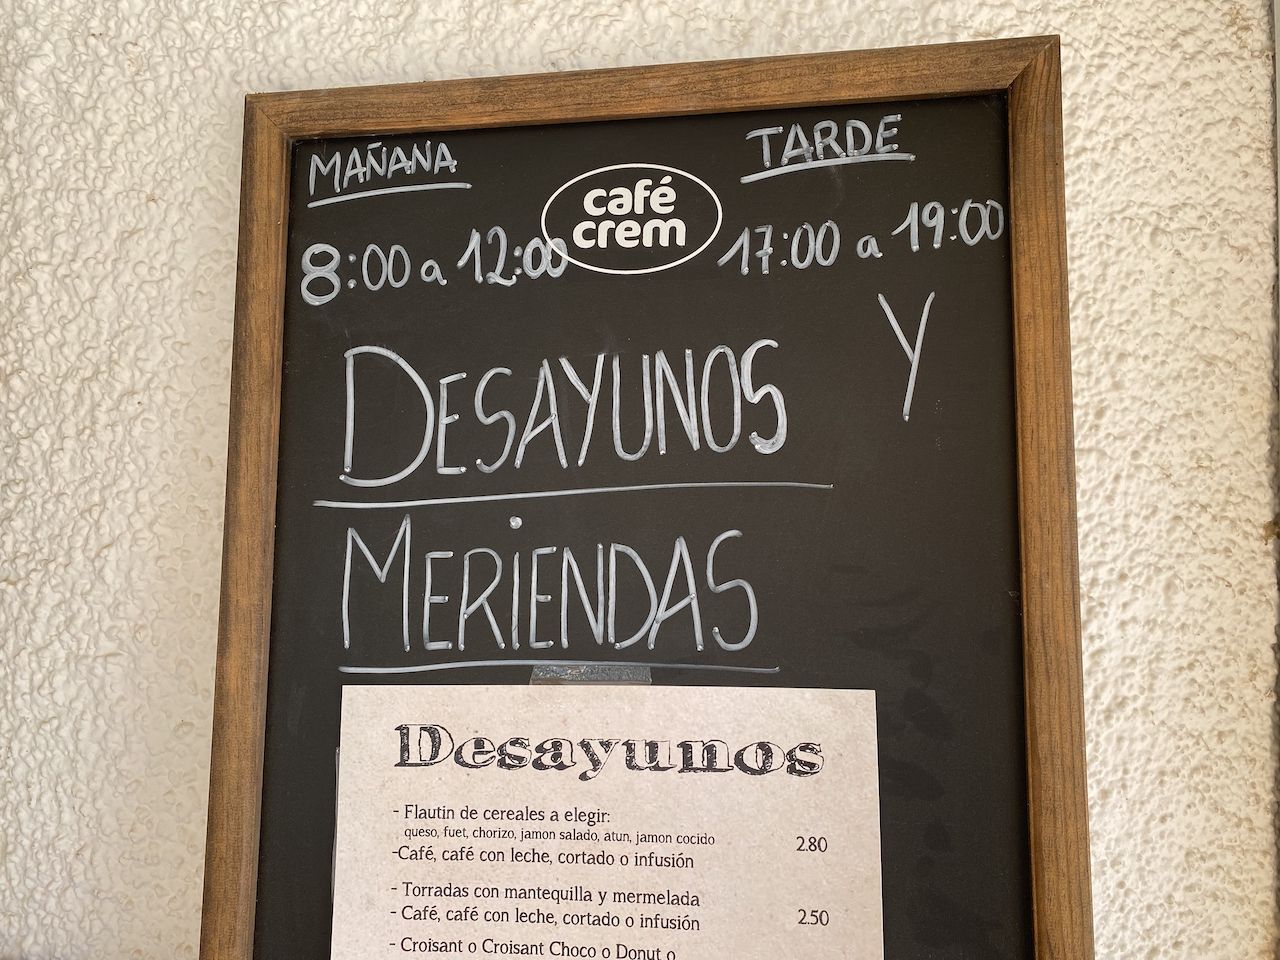 MAÑANA
TARDE
café
crem
8:00 a 12:00
17:00 a 19:00
DESAYUNOS Y
MERIENDAS
Desayunos
- Flautin de cereales a elegir:
queso, fuet, chorizo, jamon salado, atun, jamon cocido 2.80
-Café, café con leche, cortado o infusión
- Torradas con mantequilla y mermelada
- Café, café con leche, cortado o infusión 2.50
- Croisant o Croisant Choco o Donut o